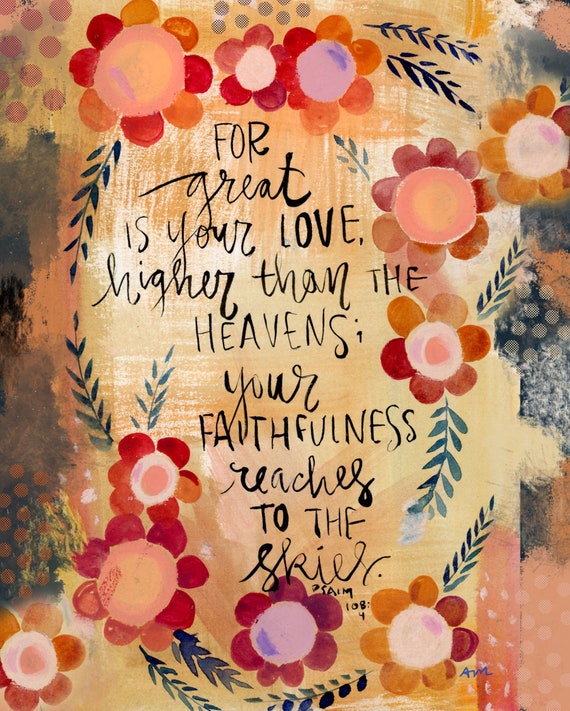 FOR
great
IS your LOVE,
higher than THE
HEAVENS;
your
FAITHFULNESS
reaches
TO THE
skies.
PSALM
108:
4
AM